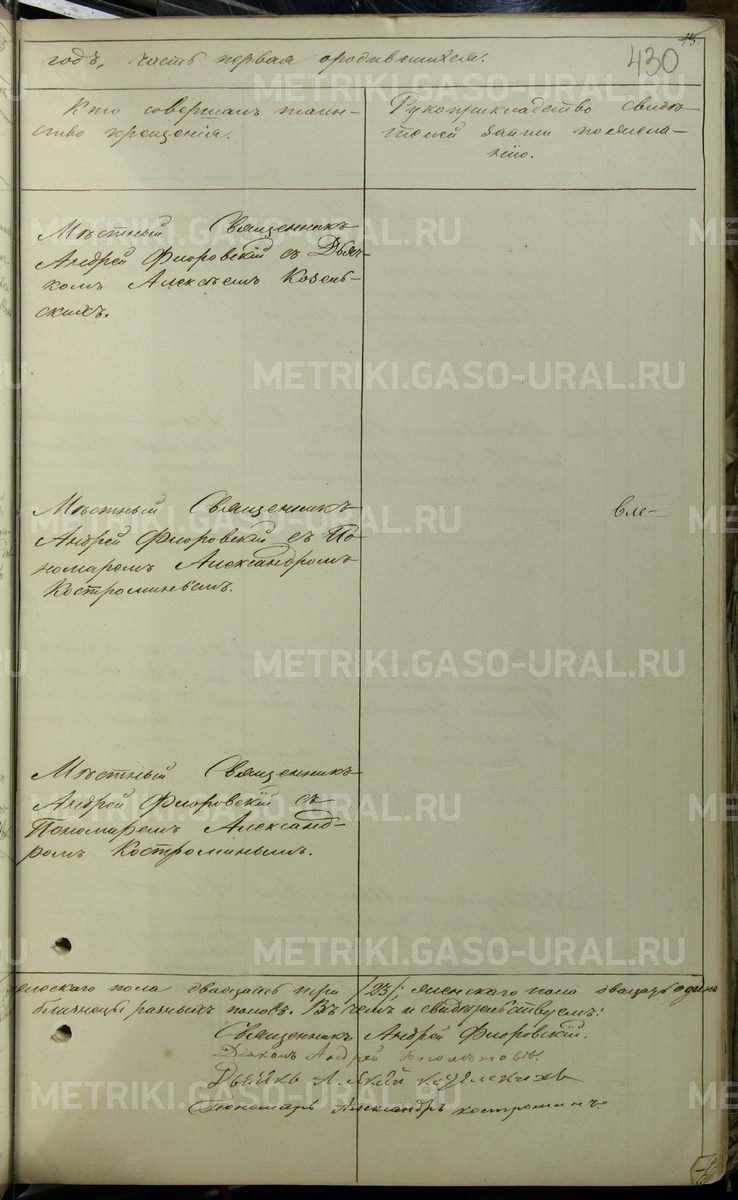 15.
430
годъ, часть первая о родившихся.
Кто совершалъ таин-
ство крещенія.
Рукоприкладство свидѣ-
телей записи по жела-
нію.
Мѣстный Священникъ
Андрей Флоровскій съ Дьяч-
комъ Алексѣемъ Козель-
скихъ.
Мѣстный Священникъ
Андрей Флоровскій съ По-
номаремъ Александромъ
Костроминымъ.
вле-
Мѣстный Священникъ
Андрей Флоровскій съ
Пономаремъ Александ-
ромъ Костроминымъ.
мужескаго пола двадцать три /23/; женскаго пола двадцать одинъ
близнецы разныхъ половъ. Въ чемъ и свидѣтельствуемъ:
Священникъ Андрей Флоровскій.
Діаконъ Андрей
Дьячекъ Алексѣй Козельскихъ
Пономарь Александръ Костроминъ
METRIKI.GASO-URAL.RU